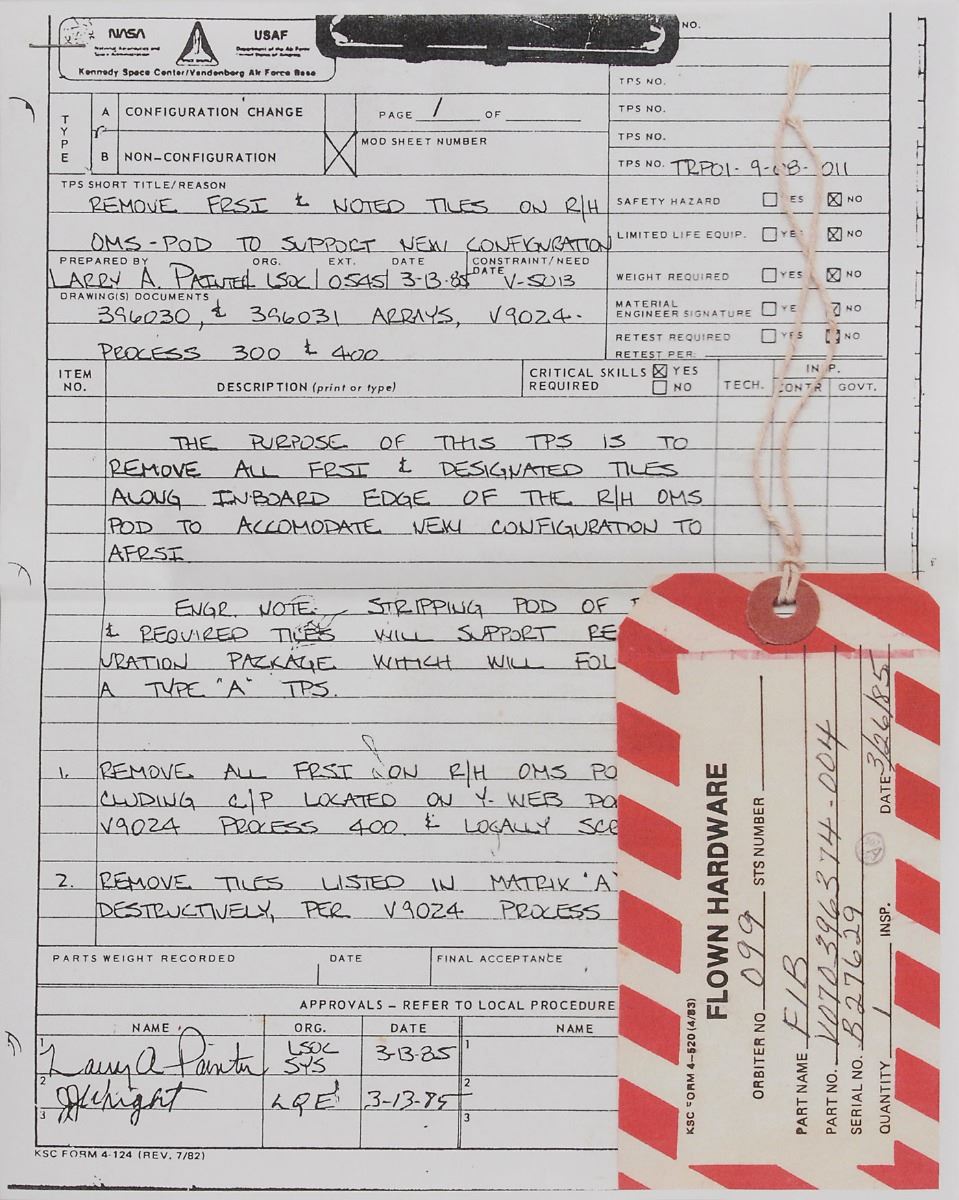 NASA
National Aeronautics and
Space Administration
USAF
Department of the Air Force
Kennedy Space Center/Vandenberg Air Force Base
NO.
TPS NO.
TPS NO.
TPS NO.
TPS NO. TRP01-9-08-011
TYPE
A CONFIGURATION CHANGE
B NON-CONFIGURATION
PAGE 1 OF
MOD SHEET NUMBER
TPS SHORT TITLE/REASON
REMOVE FRSI & NOTED TILES ON R/H
OMS-POD TO SUPPORT NEW CONFIGURATION
SAFETY HAZARD YES NO
LIMITED LIFE EQUIP. YES NO
WEIGHT REQUIRED YES NO
MATERIAL
ENGINEER SIGNATURE YE NO
RETEST REQUIRED YES NO
RETEST PER:
PREPARED BY ORG. EXT. DATE CONSTRAINT/NEED DATE
LARRY A. PAINTER LSOC 0545 3-13-85 V-5013
DRAWING(S) DOCUMENTS
396030, & 396031 ARRAYS, V9024-
PROCESS 300 & 400
ITEM NO.
DESCRIPTION (print or type)
CRITICAL SKILLS YES
REQUIRED NO
TECH.
INSP.
CONTR GOVT.
THE PURPOSE OF THIS TPS IS TO
REMOVE ALL FRSI & DESIGNATED TILES
ALONG INBOARD EDGE OF THE R/H OMS
POD TO ACCOMODATE NEW CONFIGURATION TO
AFRSI.
ENGR. NOTE: STRIPPING POD OF
& REQUIRED TILES WILL SUPPORT RE
URATION PACKAGE WHICH WILL FOL
A TYPE "A" TPS.
1. REMOVE ALL FRSI ON R/H OMS PO
CLUDING C/P LOCATED ON Y-WEB DO
V9024 PROCESS 400. & LOCALLY SCR
2. REMOVE TILES LISTED IN MATRIX "A"
DESTRUCTIVELY, PER V9024 PROCESS
PARTS WEIGHT RECORDED DATE FINAL ACCEPTANCE
APPROVALS – REFER TO LOCAL PROCEDURE
NAME ORG. DATE NAME
1 Larry A Painter LSOC SYS 3-13-85 1
2 LQE 3-13-85 2
3 3
KSC FORM 4-124 (REV. 7/82)
KSC FORM 4-520 (4/83)
FLOWN HARDWARE
ORBITER NO. 099 STS NUMBER
PART NAME FIB
PART NO. V070 396374-004
SERIAL NO. B27629
QUANTITY 1 INSP. DATE 3/26/85